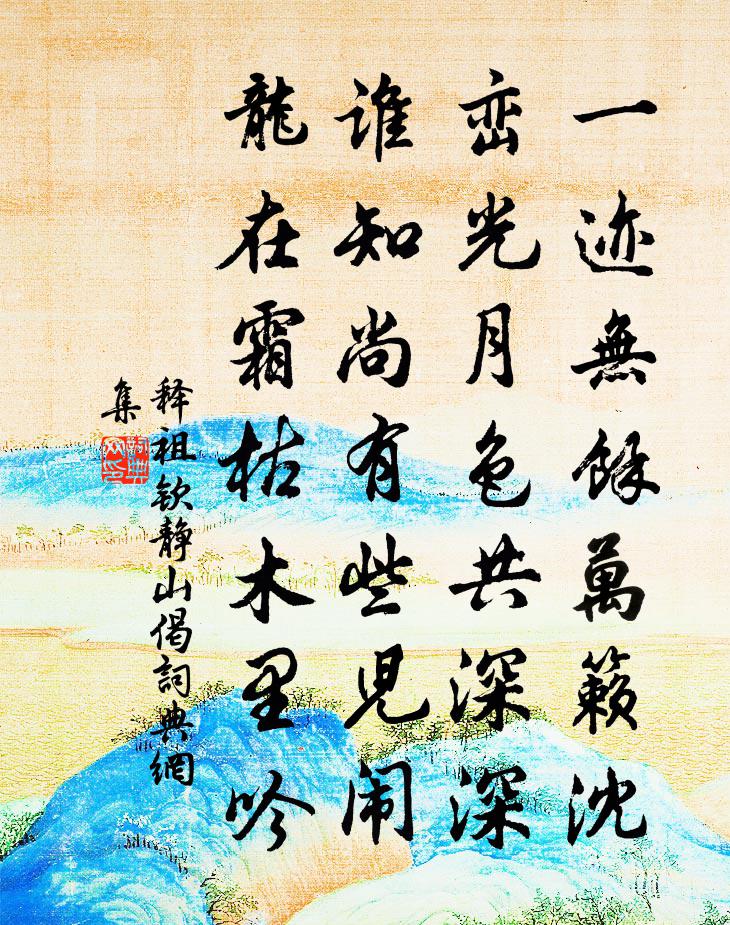 一迹無餘萬籟沈
峦光月色共深深
谁知尚有些児闹
龍在霜枯木里吟
释祖钦静山偈詞典網
集